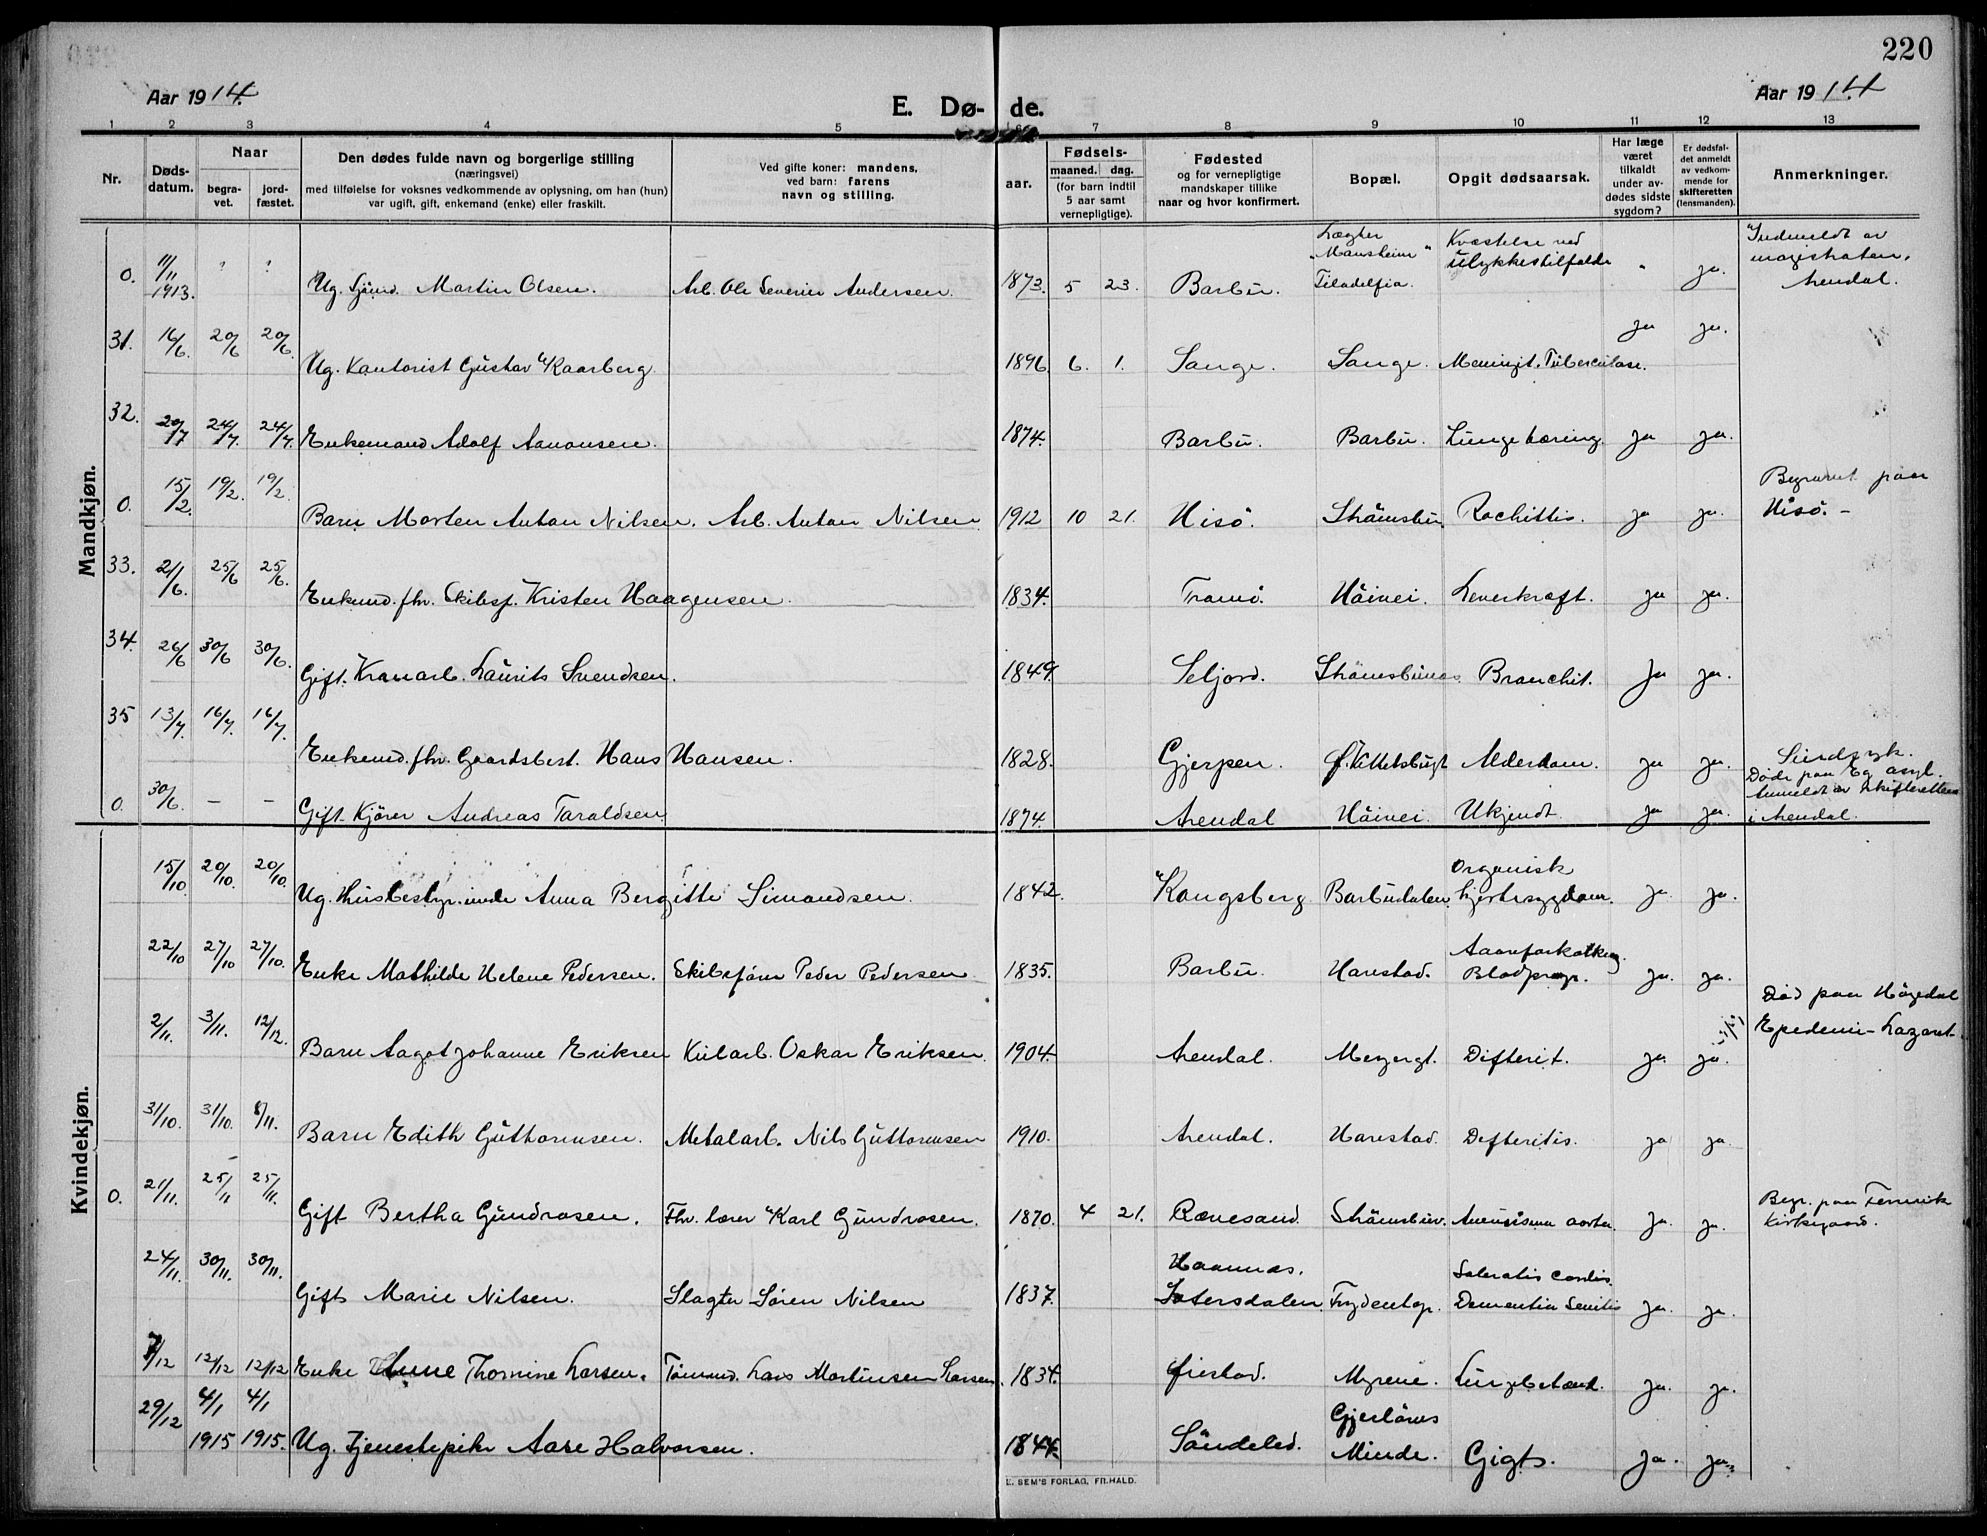 220
Aar 1914. E. Dø- de. Aar 1914
1 2 3 4 5 6 7 8 9 10 11 12 13
Nr. Døds-datum. Naar begra-vet. jord-fæstet. Den dødes fulde navn og borgerlige stilling (næringsvei) med tilføielse for voksnes vedkommende av oplysning, om han (hun) var ugift, gift, enkemand (enke) eller fraskilt. Ved gifte koner: mandens, ved barn: farens navn og stilling. aar. Fødsels- maaned. dag. (for barn indtil 5 aar samt vernepligtige). Fødested og for vernepligtige mandskaper tillike naar og hvor konfirmert. Bopæl. Opgit dødsaarsak. Har læge været tilkaldt under av-dødes sidste sygdom? Er dødsfal-det anmeldt av vedkom-mende for skifteretten (lensmanden). Anmerkninger.
Mandkjøn.
0. 11/11 1913. ? ? Ug. Sjömd. Martin Olsen. Arb. Ole Severin Andersen. 1873. 5 23. Barbu. Lægter "Mansheim" Filadelfia. Kvæstelse ved ulykkestilfælde " ja. Indmeldt av magistraten, Arendal.
31. 16/6. 20/6 20/6. Ug. Kontorist Gustav Kaarberg 1896 6. 1. Sange. Sange. Meningt. Tuberculose. ja ja.
32. 20/7 24/7. 24/7. Enkemand Adolf Aanonsen. 1874. Barbu. Barbu. Lungetæring. ja ja.
0. 15/2. 19/2. 19/2. Barn Morten Anton Nilsen. Arb. Anton Nilsen 1912 10 21. Hisö. Strömsbu Rachittis. ja ja. Begravet paa Hisö.-
33. 21/6. 25/6 25/6. Enkemd. fhv. Skibsf. Kristen Haagensen. 1834. Tromö. Höivei. Leverkræft. ja ja.
34. 26/6 30/6 30/6. Gift. Kranarb. Laurits Svendsen. 1849 Seljord. Strömsbunes. Bronchit. Ja ja.
35 13/7. 16/7. 16/7. Enkemd. fhv. Gaardsbest. Hans Hansen. 1828. Gjerpen. Ø. Kittelsbugt Alderdom. ja ja.
0. 30/6. – – Gift. Kjörer Andreas Taraldsen 1874. Arendal Höivei. Ukjendt. ja ja. Sindsyk. Döde paa Eg asyl. Anmeldt av Skifteretten i Arendal.
Kvindekjøn.
15/10. 20/10. 20/10. Ug. Husbestyrinde Anna Bergitte Simonsen. 1842. Kongsberg Barbudalen. Organisk hjertesygdom. ja. ja.
22/10 27/10 27/10. Enke Mathilde Helene Pedersen. Skibsförer Peder Pedersen 1835. Barbu. Harestad. Aareforkalkng. Blodprop. ja. ja.
2/11. 3/11. 12/12. Barn Aagot Johanne Eriksen Kularb. Oskar Eriksen. 1904. Arendal. Meyergt. Difterit. ja. ja. Död paa Högedal Epedemi-Lazaret.
31/10. 31/10. 8/11. Barn Edith Guttormsen. Metalarb. Nils Guttormsen 1910. Arendal. Harestad. Defteritis. ja ja.
0. 21/11. 25/11 25/11. Gift Bertha Gundrosen. Fhv. lærer Karl Gundrosen. 1870. 4 21. Rænesand. Strömsbu. Aneurisma aorta. ja. ja. Begr. paa Fervik Kirkegaard.
24/11. 30/11. 30/11. Gift Marie Nilsen. Slagter Sören Nilsen 1837. Hannæs. Sætersdalen. Frydentop. Scleratis cordis. Dementia Senilis ja. ja.
7/12 12/12 12/12 Enke Anne Thomine Larsen. Tömmd. Lars Martinsen Larsen. 1834. Øiestad. Myrene. Lungebetænd. ja. ja.
29/12 4/1 1915 4/1 1915. Ug. Tjenestepike Aase Halvorsen. 1844. Söndeled. Gjerlöws Minde. Gigt. Ja. ja.
E. SEM'S FORLAG, FR.HALD.